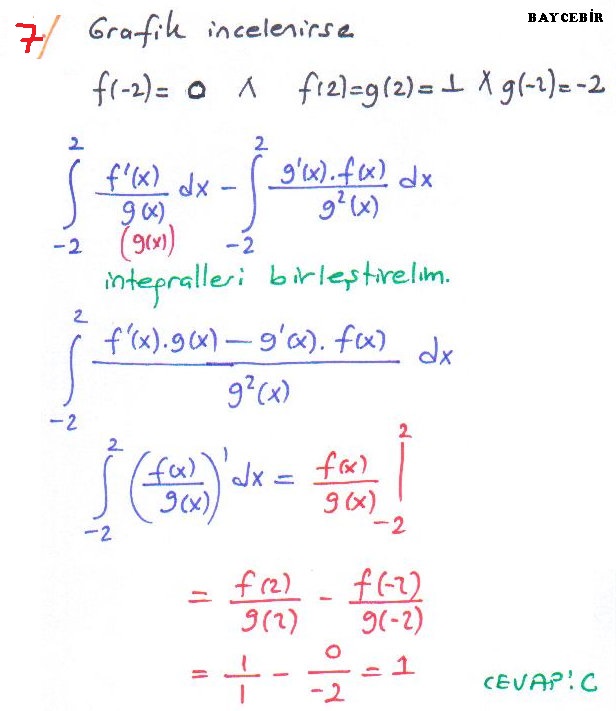 BAYCEBİR
7/ Grafik incelenirse
f(-2)= 0 ∧ f(2)=g(2)=1 ∧ g(-2)=-2
∫_{-2}^{2} f'(x)/g(x) dx - ∫_{-2}^{2} g'(x).f(x)/g²(x) dx
(g(x))
integralleri birleştirelim.
∫_{-2}^{2} (f'(x).g(x) - g'(x).f(x))/g²(x) dx
∫_{-2}^{2} (f(x)/g(x))' dx = f(x)/g(x) |_{-2}^{2}
= f(2)/g(2) - f(-2)/g(-2)
= 1/1 - 0/-2 = 1
CEVAP: C